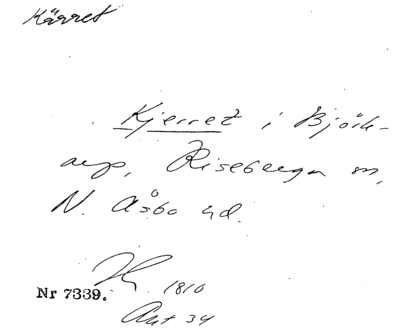 Kärret
Kjerret i Björk-
arp, Riseberga sn,
N. Åsbo hd.
1810
Nr 7339.
Akt 34